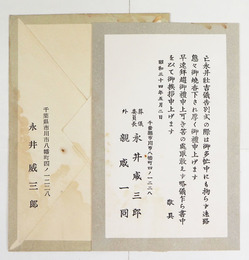 亡永井壮吉儀告別式の際は御多忙中にも拘らず遠路
態々御焼香下され厚く御礼申上げます
早速拝趨御礼申上可きの処取敢えず略儀乍ら書中
を以て御挨拶申上げます
敬具
昭和三十四年五月二日
千葉県市川市八幡町四ノ一二二八
葬儀
委員長 永井威三郎
外 親戚一同
千葉県市川市八幡町四ノ一二二八
永井威三郎